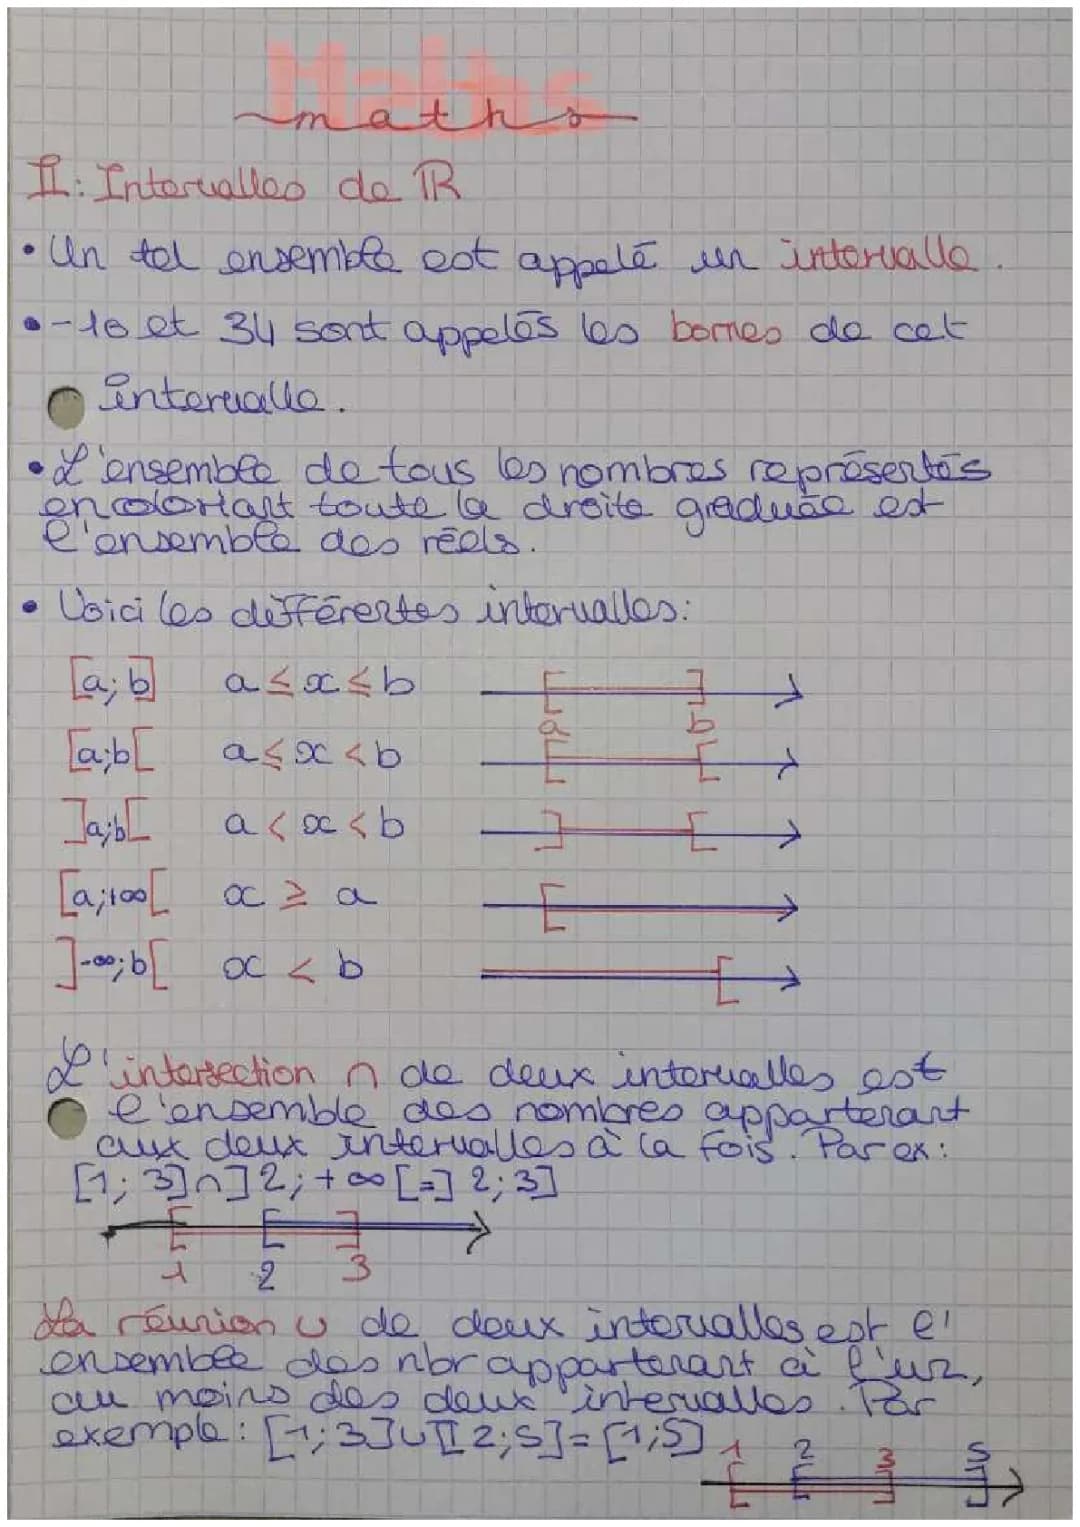 Maths
maths
II: Intervalles de ℝ
• Un tel ensemble est appelé un intervalle.
• -10 et 34 sont appelés les bornes de cet
intervalle.
• L'ensemble de tous les nombres représentés
en coloriant toute la droite graduée est
l'ensemble des réels.
• Voici les différentes intervalles:
[a;b] a ≤ x ≤ b
a b
[a;b[ a ≤ x < b
]a;b[ a < x < b
[a;+∞[ x ≥ a
]-∞;b[ x < b
L'intersection ∩ de deux intervalles est
l'ensemble des nombres appartenant
aux deux intervalles à la fois. Par ex:
[1; 3]∩]2;+∞[=]2;3]
1 2 3
La réunion ∪ de deux intervalles est l'
ensemble des nbr appartenant à l'un,
au moins des deux intervalles. Par
exemple: [1;3]∪[2;5]=[1;5]
1 2 3 5